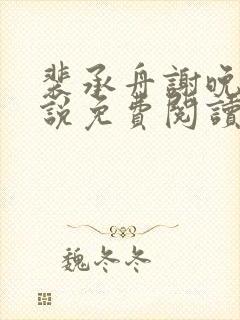 裴承舟謝晚
說免費閱讀
魏冬冬